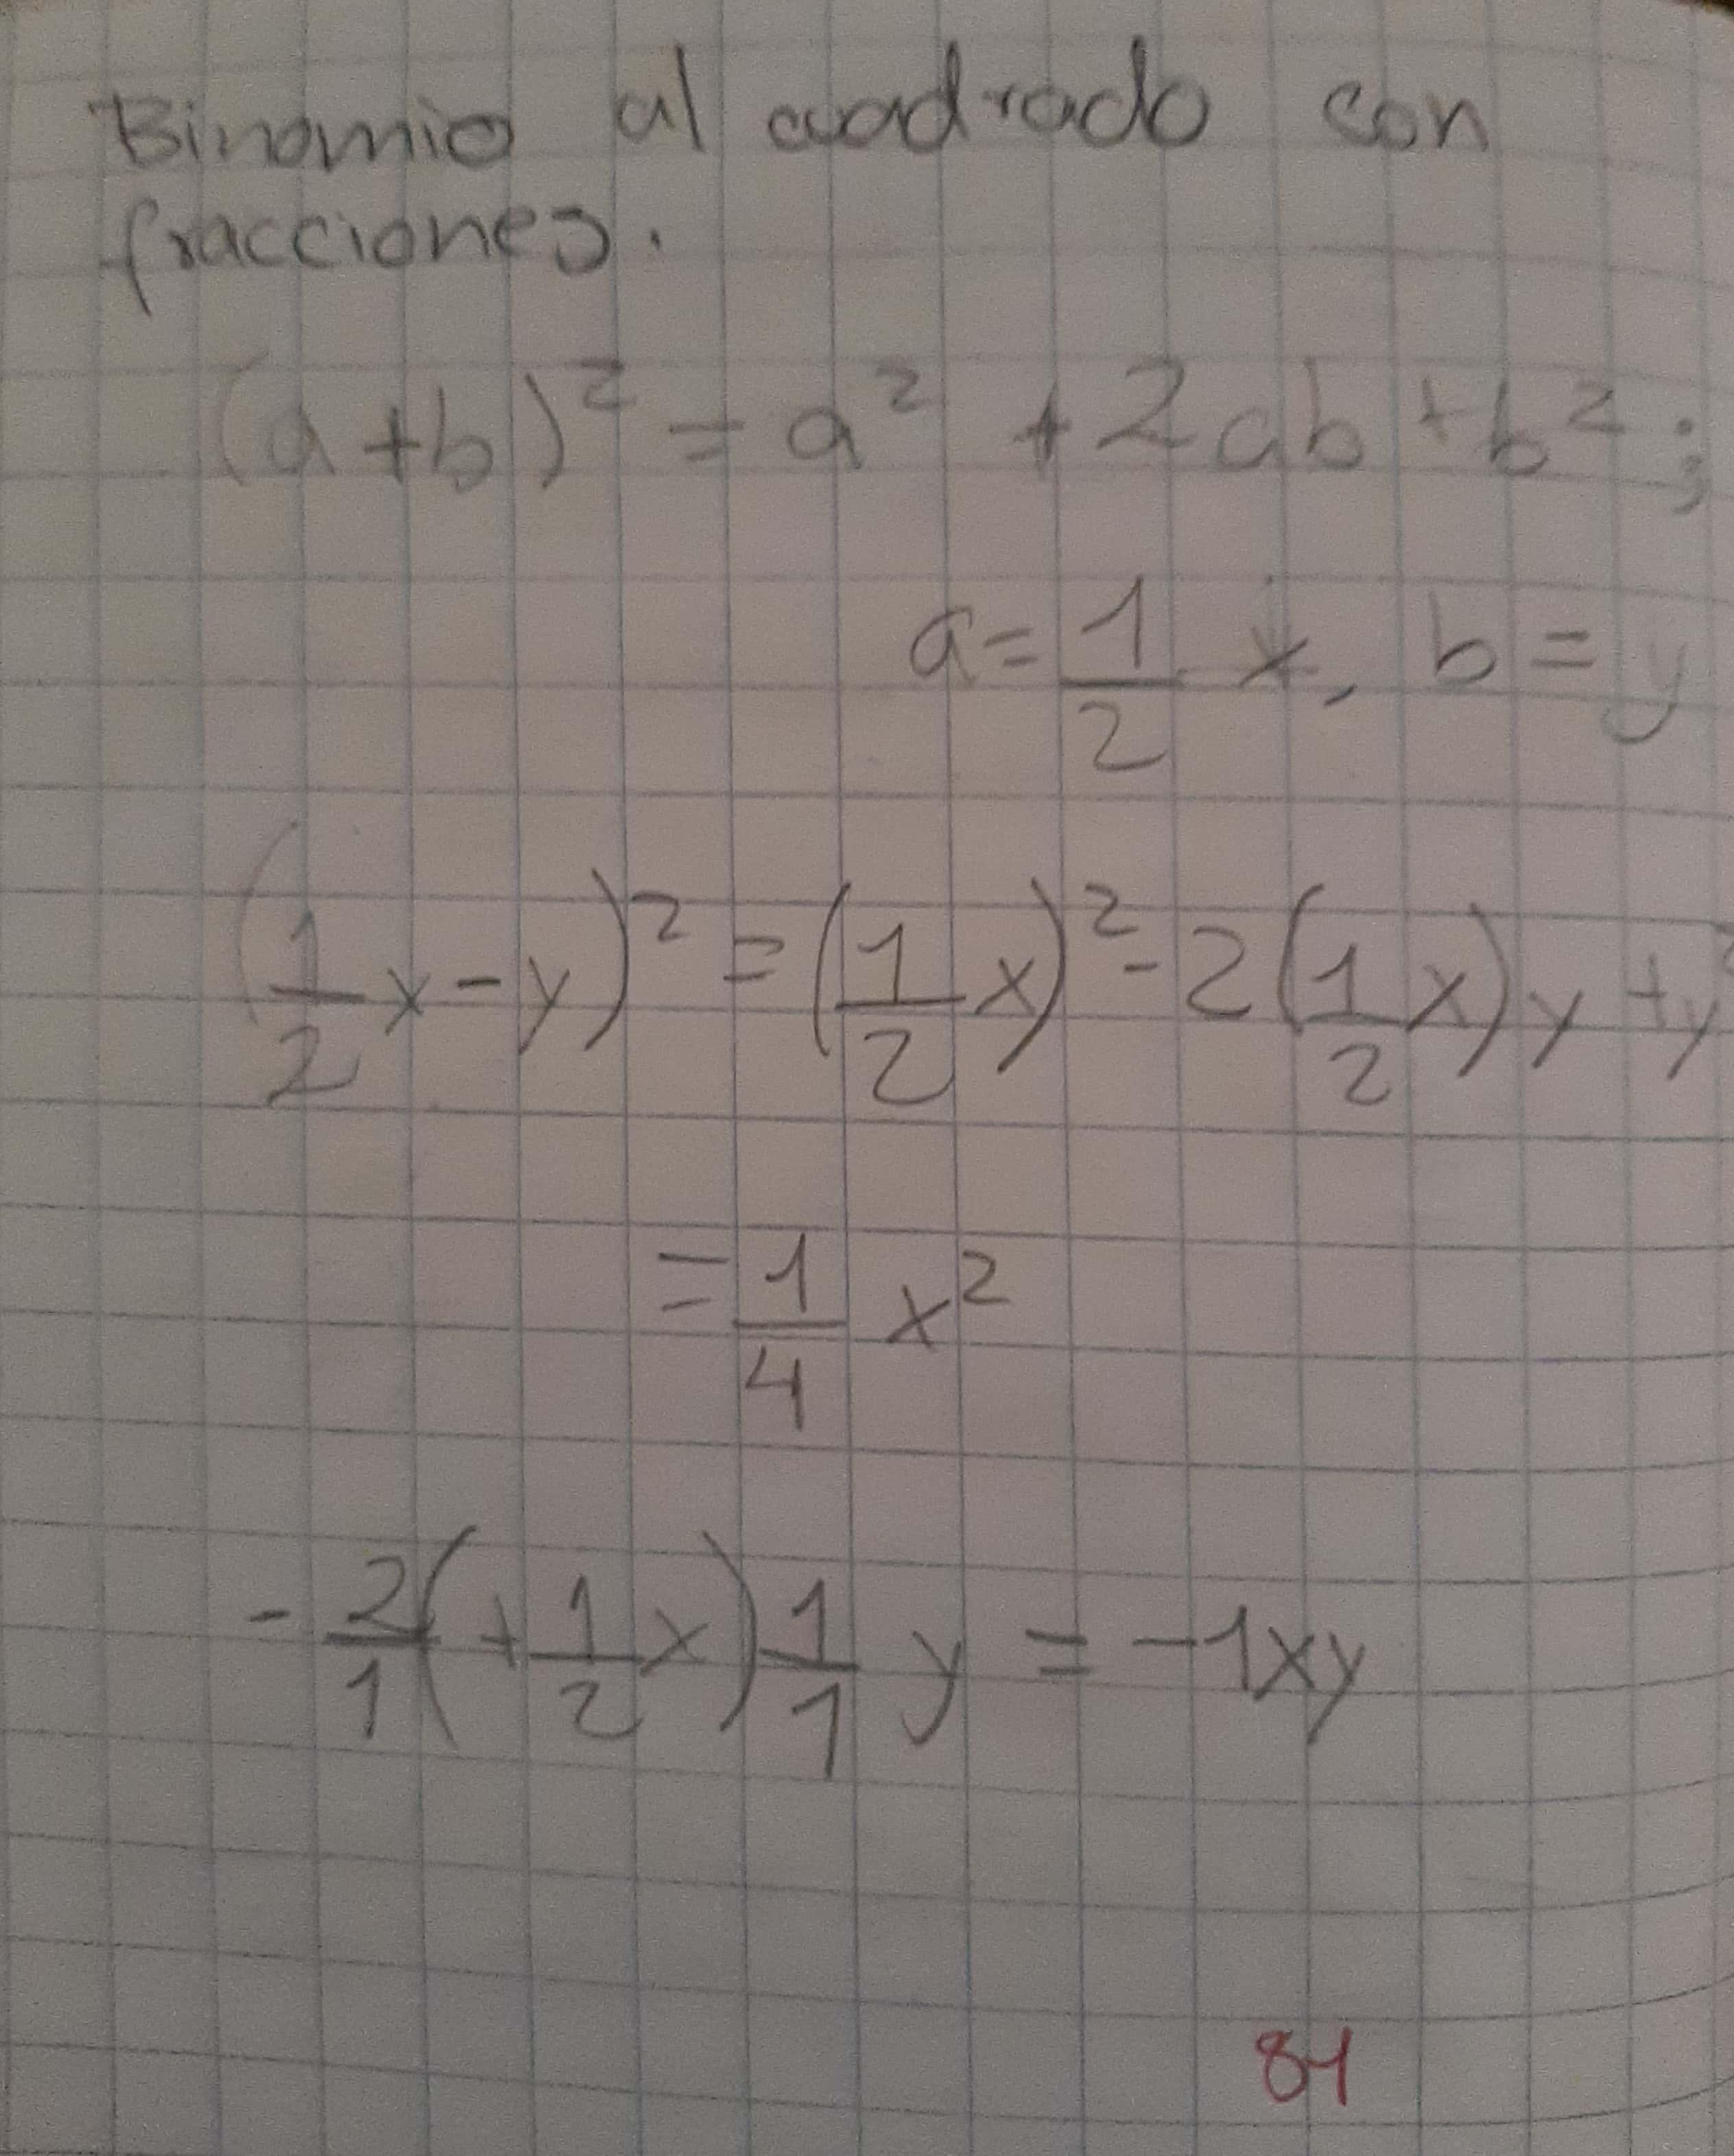 Binomio al cuadrado con
fracciones.
(a+b)² = a² + 2ab + b² ;
a = 1/2 x, b = y
(1/2 x - y)² = (1/2 x)² - 2(1/2 x) y + y²
= 1/4 x²
- 2/1 (+ 1/2 x) 1/1 y = -1xy
81